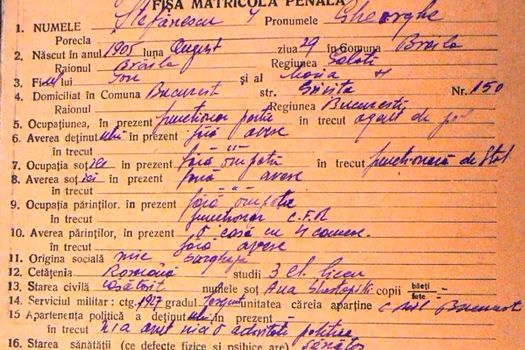 FIȘA MATRICOLĂ PENALĂ
1. NUMELE Ștefănescu Pronumele Gheorghe
Porecla
2. Născut în anul 1905 luna August ziua 29 în Comuna Brăila
Raionul Brăila Regiunea Galați
3. Fiul lui Ion și al Maria
4. Domiciliat în Comuna București str. Grivița Nr. 150
Raionul Regiunea București
5. Ocupațiunea, în prezent funcționar în trecut agent de
6. Averea deținutului în prezent fără avere
în trecut
7. Ocupația soției în prezent fără ocupație în trecut funcționară de Stat
8. Averea soției în prezent fără avere
în trecut
9. Ocupația părinților. în prezent fără ocupație
în trecut funcționar C.F.R
10. Averea părinților, în prezent o casă cu 4 camere.
în trecut fără avere
11. Origina socială mic burghez
12. Cetățenia Română studii 3 cl. liceu
13. Starea civilă căsătorit numele soț Ana copii băeți
fete
14. Serviciul militar: ctg. 1927 gradul unitatea căreia aparține București
15 Apartenența politică a deținutului în prezent
în trecut n'a avut nici o activitate politică
16. Starea sănătății (ce defecte fizice și psihice are) sănătos